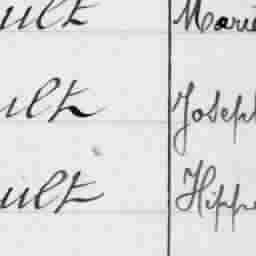 ult Marie
ult Joseph
ult Hippo